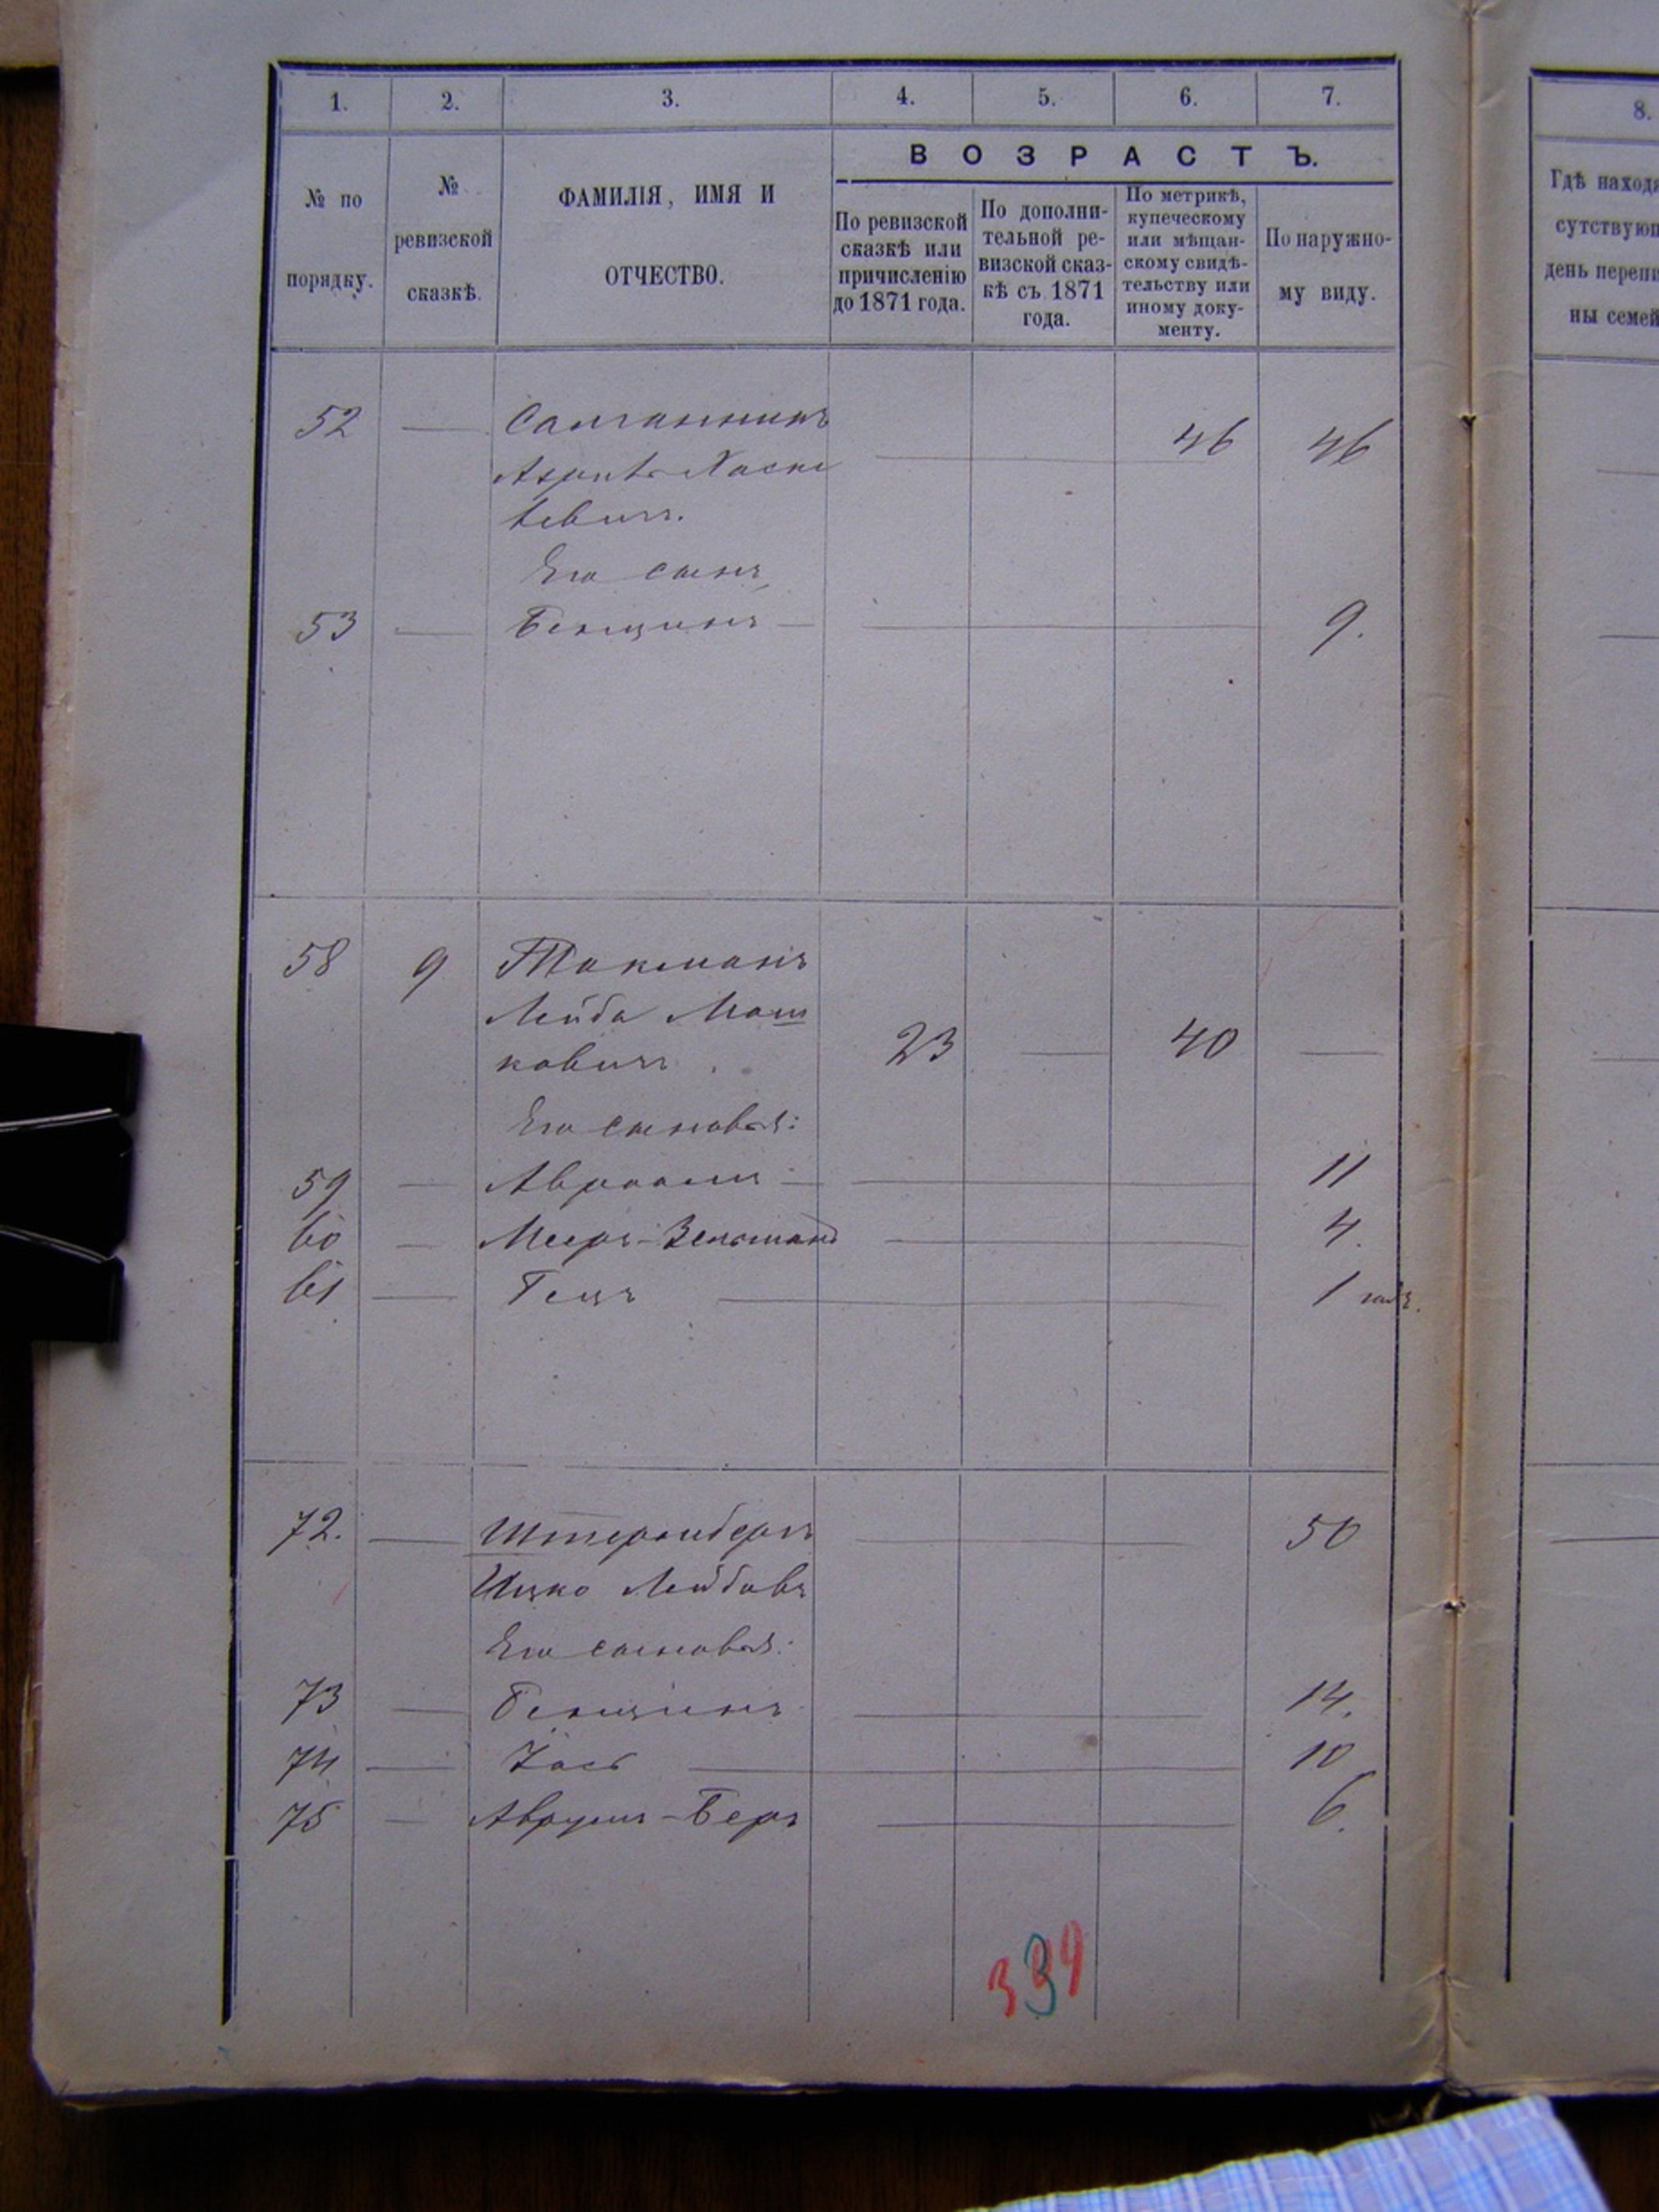 1. 2. 3. 4. 5. 6. 7.
8.
ВОЗРАСТЪ.
№ по порядку.
№ ревизской сказкѣ.
ФАМИЛІЯ, ИМЯ И
ОТЧЕСТВО.
По ревизской
сказкѣ или
причисленію
до 1871 года.
По дополни-
тельной ре-
визской сказ-
кѣ съ 1871
года.
По метрикѣ,
купеческому
или мѣщан-
скому свидѣ-
тельству или
иному доку-
менту.
По наружно-
му виду.
Гдѣ наход
сутствую
день
ны семей
52 — — 46 46
Его сынъ
53 — Бенционъ — — 9.
58 9 Такманъ
Лейба Мош
ковичъ. 23 — 40 —
Его сыновья:
59 — Авраамъ — — 11
60 — Мееръ-Зельманъ — 4.
61 — Гецъ — 1 годъ.
72. — Штернбергъ — 50
Ицко Лейбовъ
Его сыновья:
73 — Бенционъ — 14.
74 — — 10
75 — Аврумъ-Беръ — 6.
339